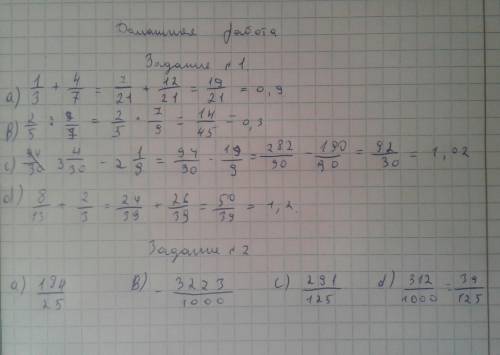 Домашняя работа
Задание №1
a) 1/3 + 4/7 = 7/21 + 12/21 = 19/21 = 0,9
b) 2/5 : 9/7 = 2/5 · 7/9 = 14/45 = 0,3
c) 3 4/30 - 2 1/9 = 94/30 - 19/9 = 282/90 - 190/90 = 92/30 = 1,02
d) 8/13 + 2/3 = 24/39 + 26/39 = 50/39 = 1,2
Задание №2
a) 194/25 b) - 3223/1000 c) 291/125 d) 312/1000 = 39/125